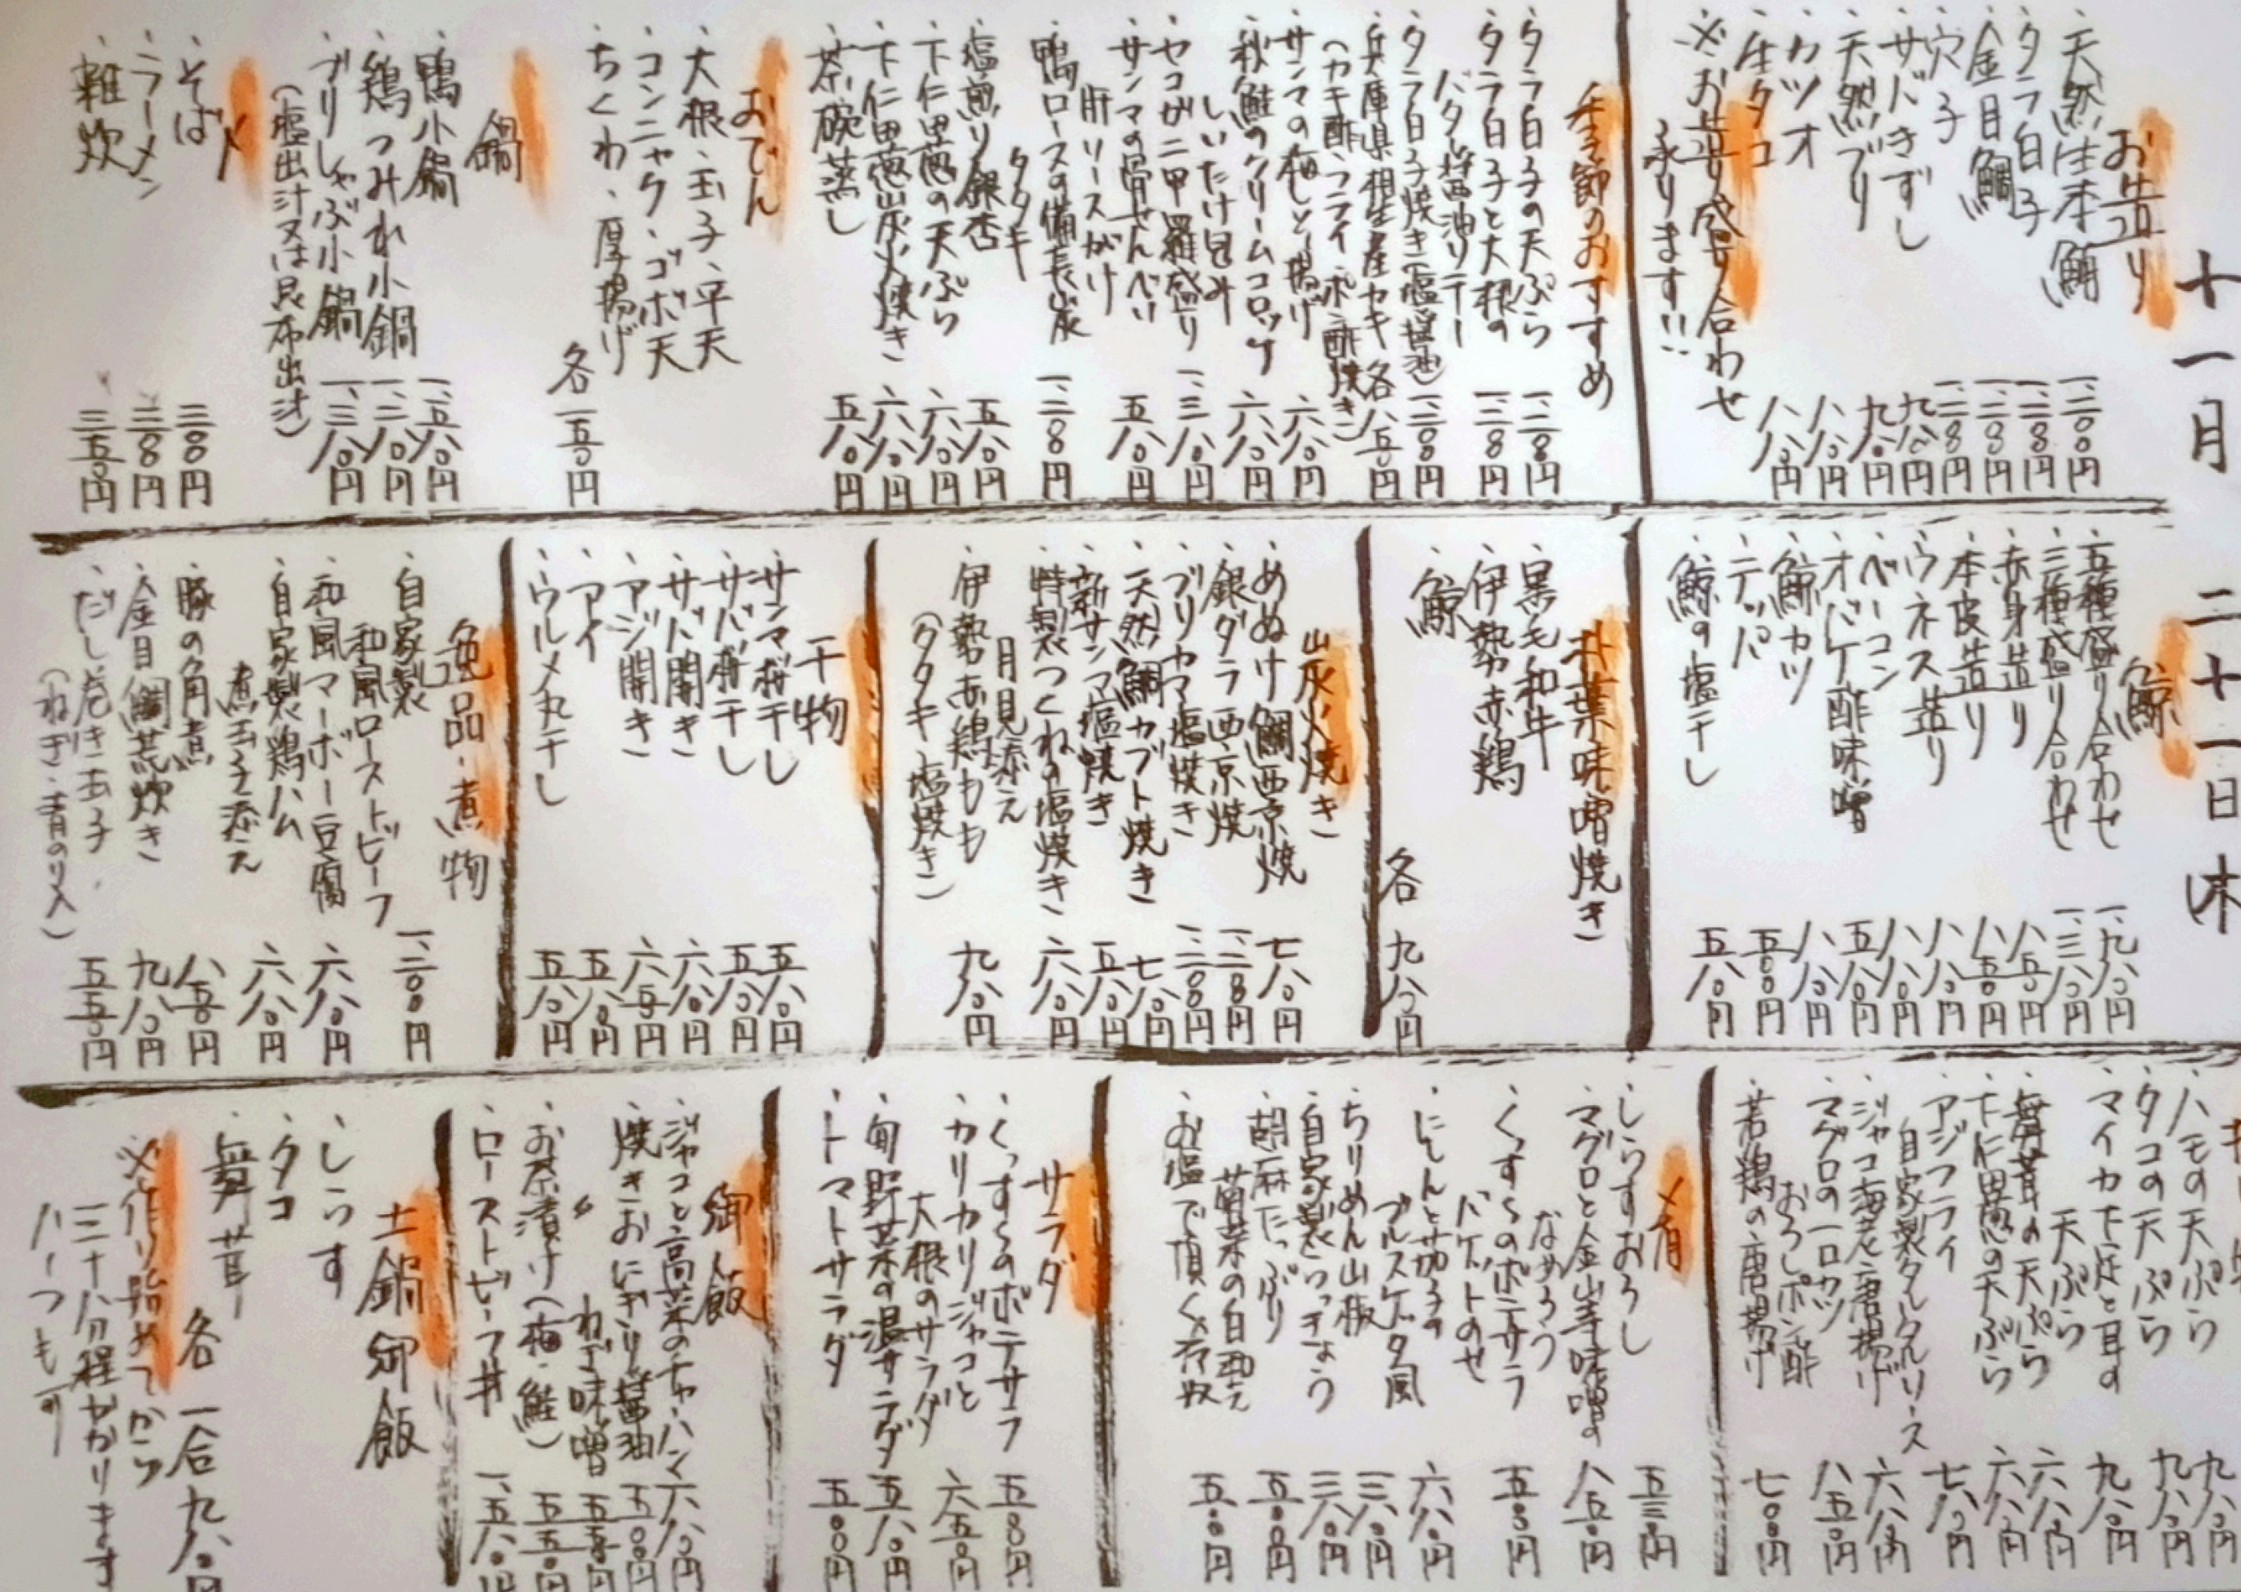 十一月 二十一日 木
お造り
・天然生本鮪 一、二〇〇円
・タラ白子 一、二〇〇円
・金目鯛 一、二〇〇円
・穴子 一、二〇〇円
・サバきずし 九八〇円
・天然ブリ 九八〇円
・カツオ 八八〇円
・生タコ 八八〇円
※お造り盛り合わせ
承ります!!
季節のおすすめ
・タラ白子の天ぷら 一、二〇〇円
・タラ白子と大根の
バター醤油ソテー 一、二〇〇円
・タラ白子焼き(塩・醤油) 一、二〇〇円
・兵庫県相生産カキ 各八五〇円
(カキ酢・フライ・ポン酢焼き)
・サンマの梅しそ揚げ 六八〇円
・秋鮭のクリームコロッケ 六八〇円
しいたけ包み
・セコガニ甲羅盛り 一、三八〇円
・サンマの骨せんべい 五八〇円
肝ソースがけ
・鴨ロースの備長炭 一、二〇〇円
タタキ
・塩煎り銀杏 五八〇円
・下仁田葱の天ぷら 六八〇円
・下仁田葱炭火焼き 六八〇円
・茶碗蒸し 五八〇円
おでん
・大根・玉子・平天
・コンニャク・ゴボ天
・ちくわ・厚揚げ
各一五〇円
鍋
・鴨小鍋 一、五八〇円
・鶏つみれ小鍋 一、二八〇円
・ブリしゃぶ小鍋 一、三八〇円
(塩出汁又は昆布出汁)
〆
・そば 三〇〇円
・ラーメン 三〇〇円
・雑炊 三五〇円
鯨
・五種盛り合わせ 一、九八〇円
・三種盛り合わせ 一、三八〇円
・赤身造り 八五〇円
・本皮造り 八五〇円
・ウネス造り 八八〇円
・ベーコン 八八〇円
・オバケ酢味噌 五八〇円
・鯨カツ 八八〇円
・テッパ 五〇〇円
・鯨の塩干し 五八〇円
朴葉味噌焼き
・黒毛和牛
・伊勢赤鶏
・鯨
各九八〇円
炭火焼き
・めぬけ鯛西京焼 七八〇円
・銀ダラ西京焼 一、二〇〇円
・ブリカマ塩焼き 一、二〇〇円
・天然鯛カブト焼き 七八〇円
・新サンマ塩焼き 五八〇円
・特製つくねの塩焼き 六八〇円
月見添え
・伊勢赤鶏もも 九八〇円
(タタキ・塩焼き)
干物
・サンマ桜干し 五八〇円
・サバ桜干し 五八〇円
・サバ開き 六八〇円
・アジ開き 六五〇円
・アイ 五八〇円
・ウルメ丸干し 五八〇円
逸品・煮物
・自家製
和風ローストビーフ 一、二〇〇円
・和風マーボー豆腐 六八〇円
・自家製鶏ハム 六八〇円
煮玉子添え
・豚の角煮 八五〇円
・金目鯛荒炊き 九八〇円
・だし巻き玉子 五五〇円
(ねぎ・青のり入)
・ハモの天ぷら 九八〇円
・タコの天ぷら 九八〇円
・マイカ下足と耳の
天ぷら 九八〇円
・舞茸の天ぷら 六八〇円
・下仁田葱の天ぷら 六八〇円
・アジフライ 七八〇円
自家製タルタルソース
・ジャコ海老唐揚げ 六八〇円
・マグロの一口カツ 八五〇円
おろしポン酢
・若鶏の唐揚げ 七〇〇円
・しらすおろし 五三〇円
・マグロと金山寺味噌の 八五〇円
なめろう
・くずくずのポテサラ 五〇〇円
バケットのせ
・にしんと茄子の 六八〇円
ブルスケッタ風
・ちりめん山椒 三八〇円
・自家製らっきょう 三八〇円
・胡麻たっぷり 五〇〇円
菊菜の白和え
・お塩で頂く冷奴 五〇〇円
サラダ
・くずくずのポテサラ 五〇〇円
・カリカリジャコと 六五〇円
大根のサラダ
・旬野菜の温サラダ 五八〇円
・トマトサラダ 五〇〇円
御飯
・ジャコと高菜のチャーハン 六八〇円
・焼きおにぎり醤油 五〇〇円
〃 ねぎ味噌 五五〇円
・お茶漬け(梅・鮭) 五五〇円
・ローストビーフ丼 一、五八〇円
土鍋御飯
・しらす
・タコ
・舞茸
各 一合 九八〇円
※作り始めてから
三十分程かかります